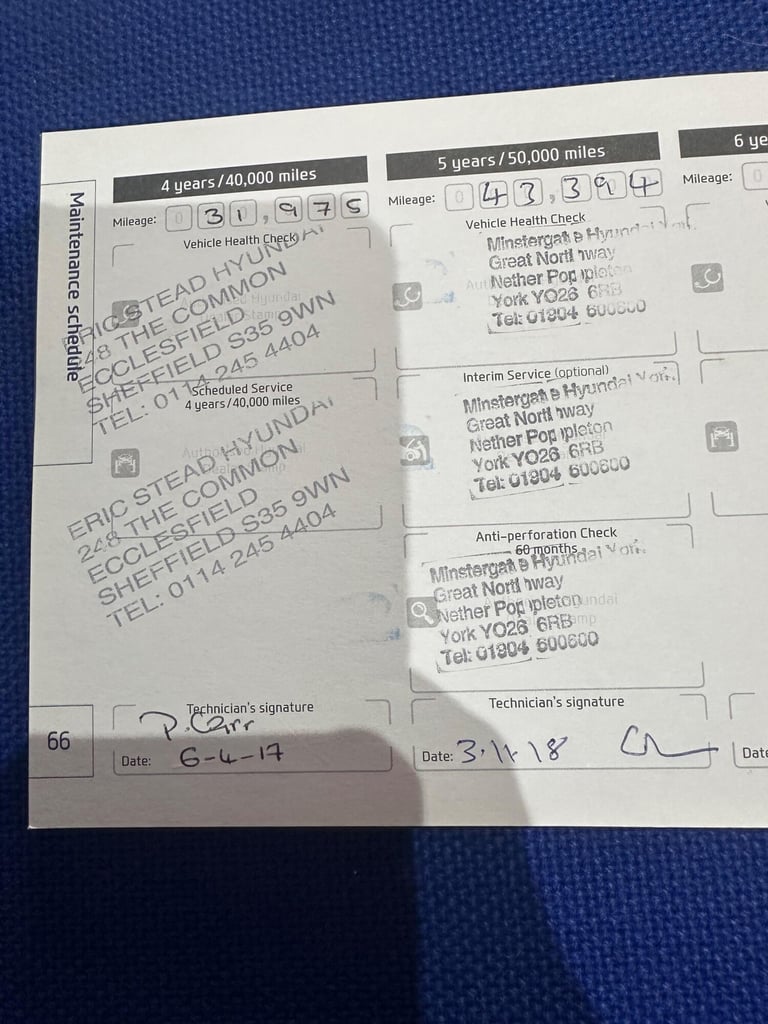 Maintenance schedule
66
4 years/40,000 miles
Mileage: 0 31,975
Vehicle Health Check
ERIC STEAD HYUNDAI
248 THE COMMON
ECCLESFIELD
SHEFFIELD S35 9WN
TEL: 0114 245 4404
Scheduled Service
4 years/40,000 miles
ERIC STEAD HYUNDAI
248 THE COMMON
ECCLESFIELD
SHEFFIELD S35 9WN
TEL: 0114 245 4404
Technician's signature
P. Carr
Date: 6-4-17
5 years/50,000 miles
Mileage: 0 43,394
Vehicle Health Check
Minstergate Hyundai York
Great North way
Nether Poppleton
York YO26 6RB
Tel: 01904 600600
Interim Service (optional)
Minstergate Hyundai York
Great North way
Nether Poppleton
York YO26 6RB
Tel: 01904 600600
Anti-perforation Check
60 months
Minstergate Hyundai York
Great North way
Nether Poppleton
York YO26 6RB
Tel: 01904 600600
Technician's signature
Date: 3.11.18
6 ye
Mileage: 0
Date